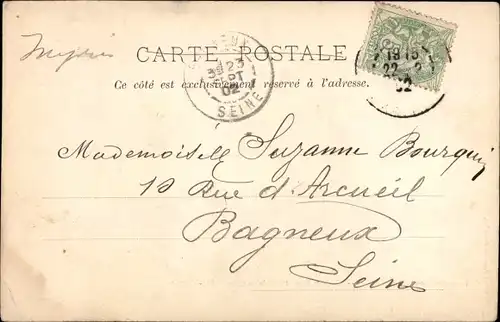 CARTE POSTALE
Ce côté est exclusivement réservé à l'adresse.
23
SEPT
02
SEINE
19 15
22
02
Mademoiselle Suzanne Bourquin
10 Rue d'Arcueil
Bagneux
Seine